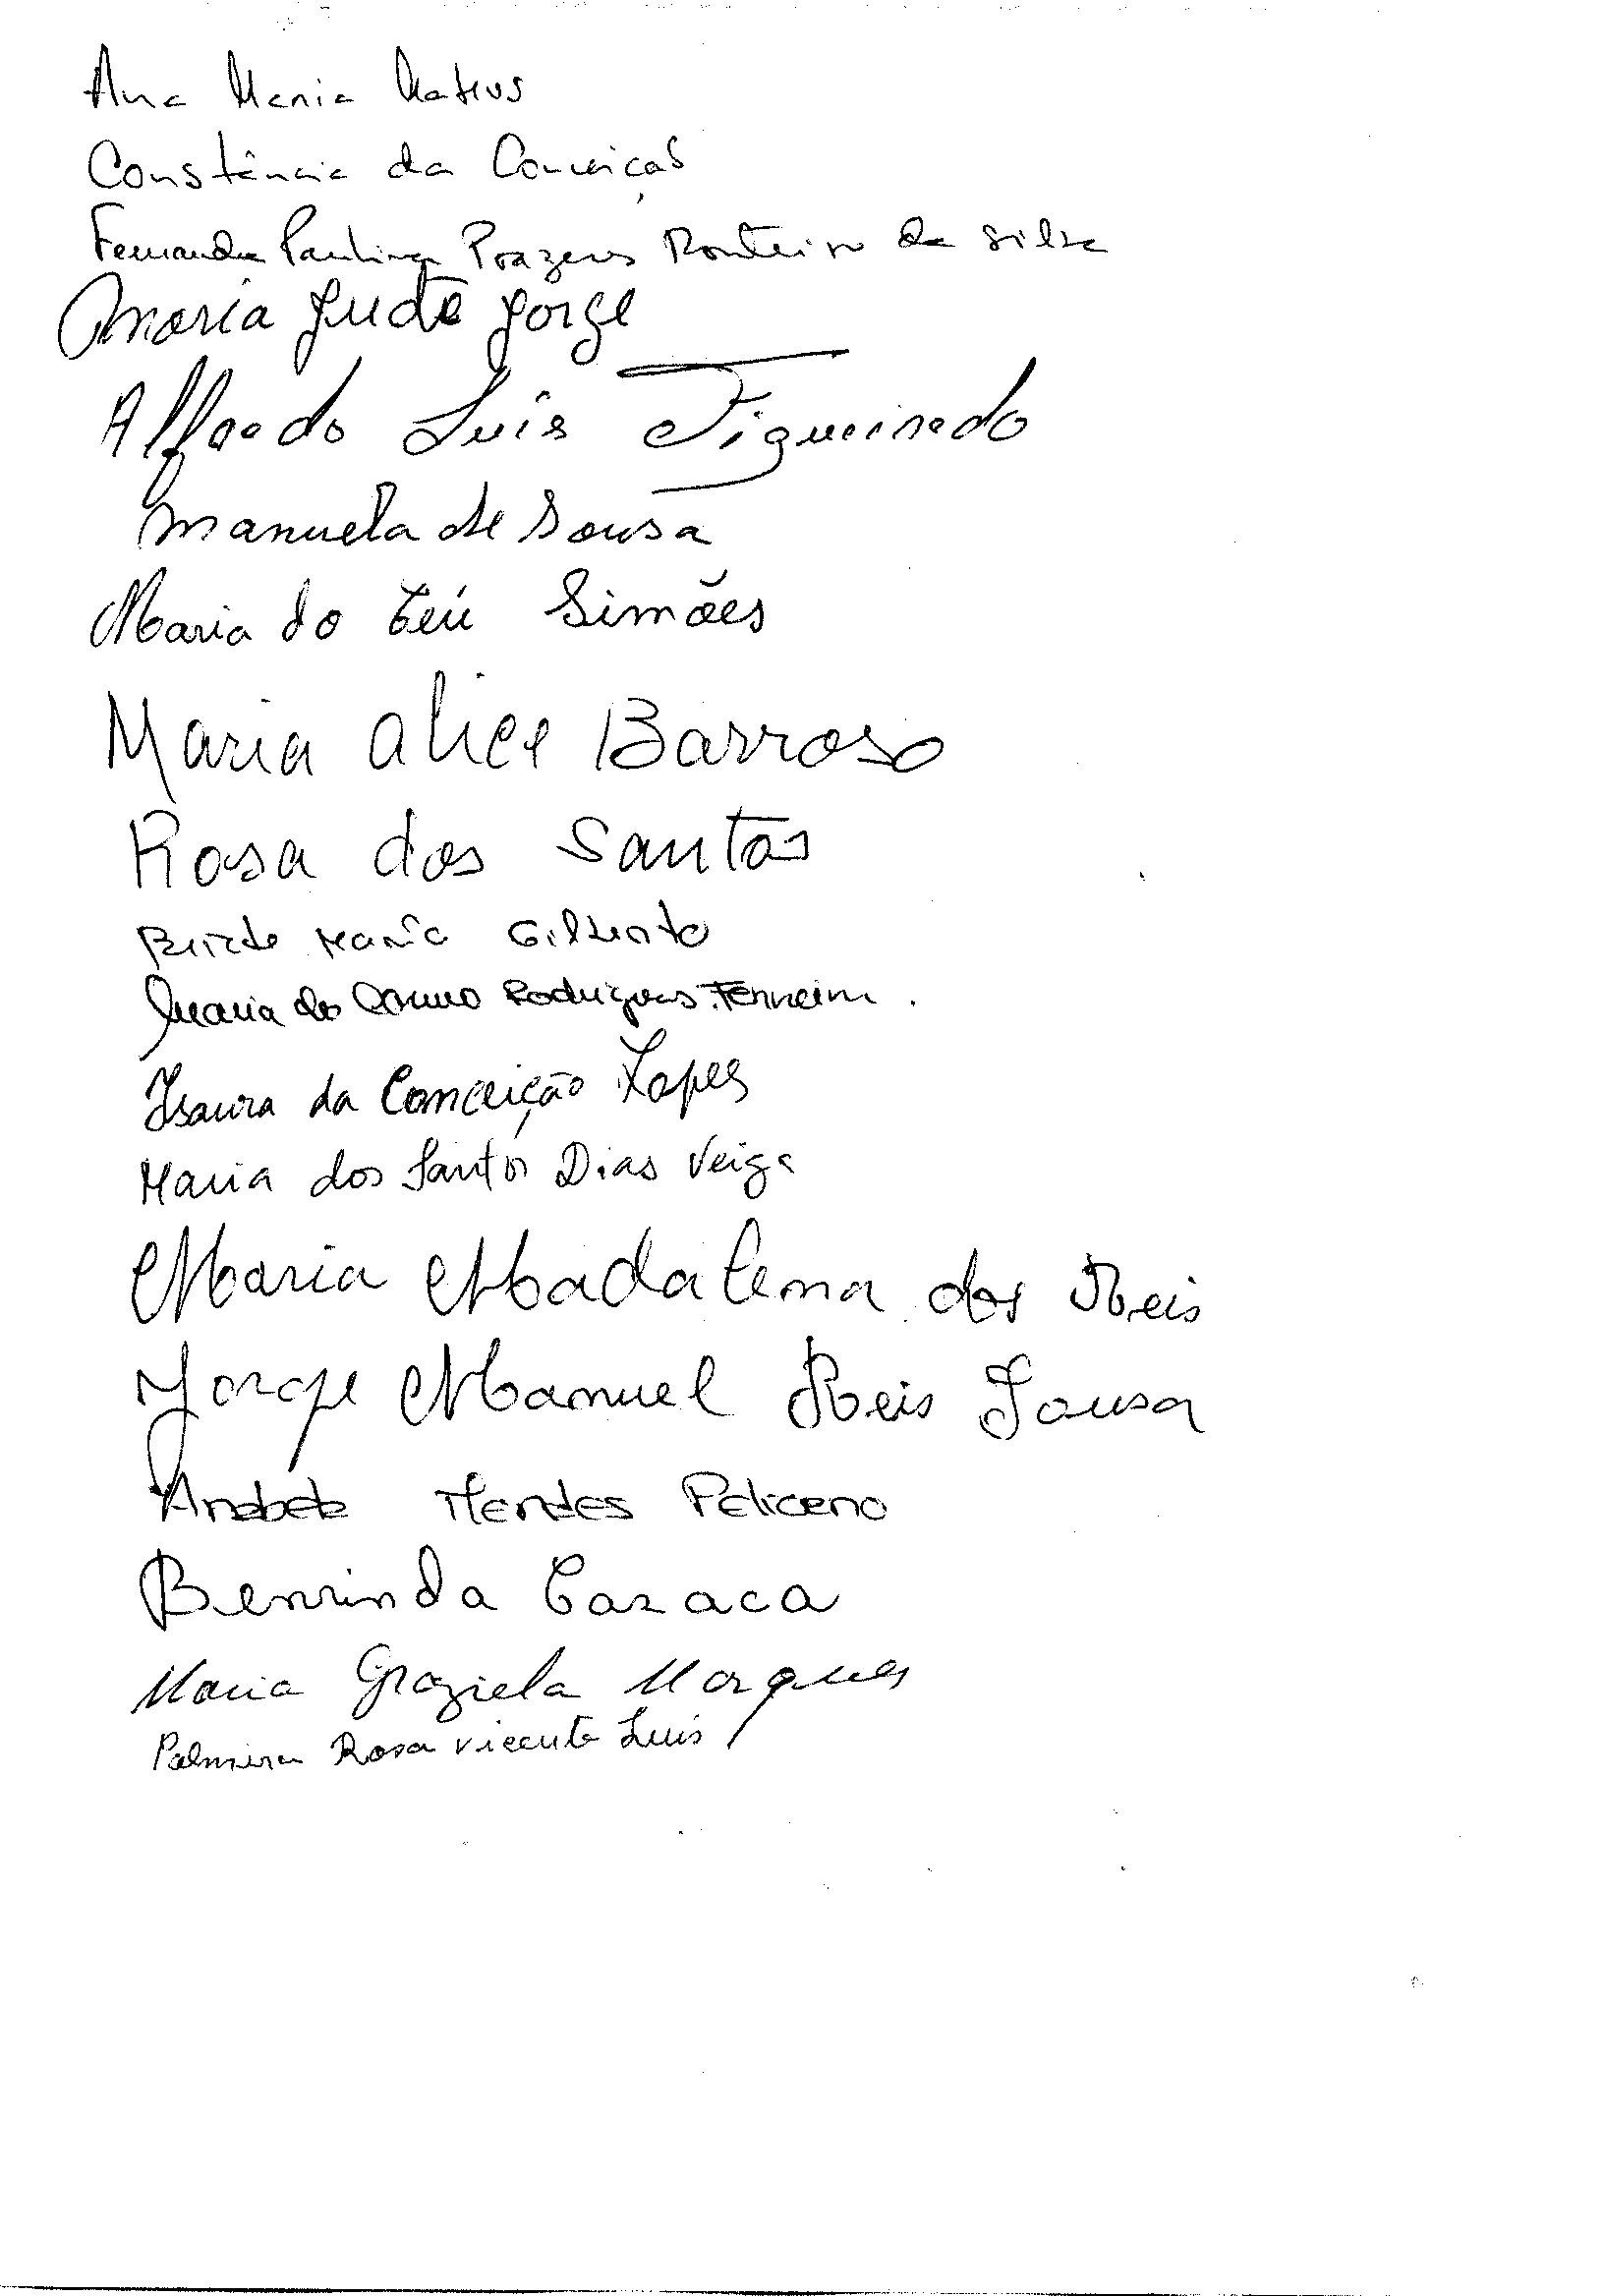 Ana Maria Mateus
Constância da Conceição
Fernanda Paulina Prazeres Monteiro da Silva
Maria Judite Jorge
Alfredo Luís Figueiredo
Manuela de Sousa
Maria do Céu Simões
Maria Alice Barroso
Rosa dos Santos
Maria Gilberto
Maria do Carmo Rodrigues Ferreira.
Isaura da Conceição Lopes
Maria dos Santos Dias Veiga
Maria Madalena dos Reis
Jorge Manuel Reis Sousa
Anabela Mendes Feliceno
Benvinda Cazaca
Maria Graziela Marques
Palmira Rosa Vicente Luís